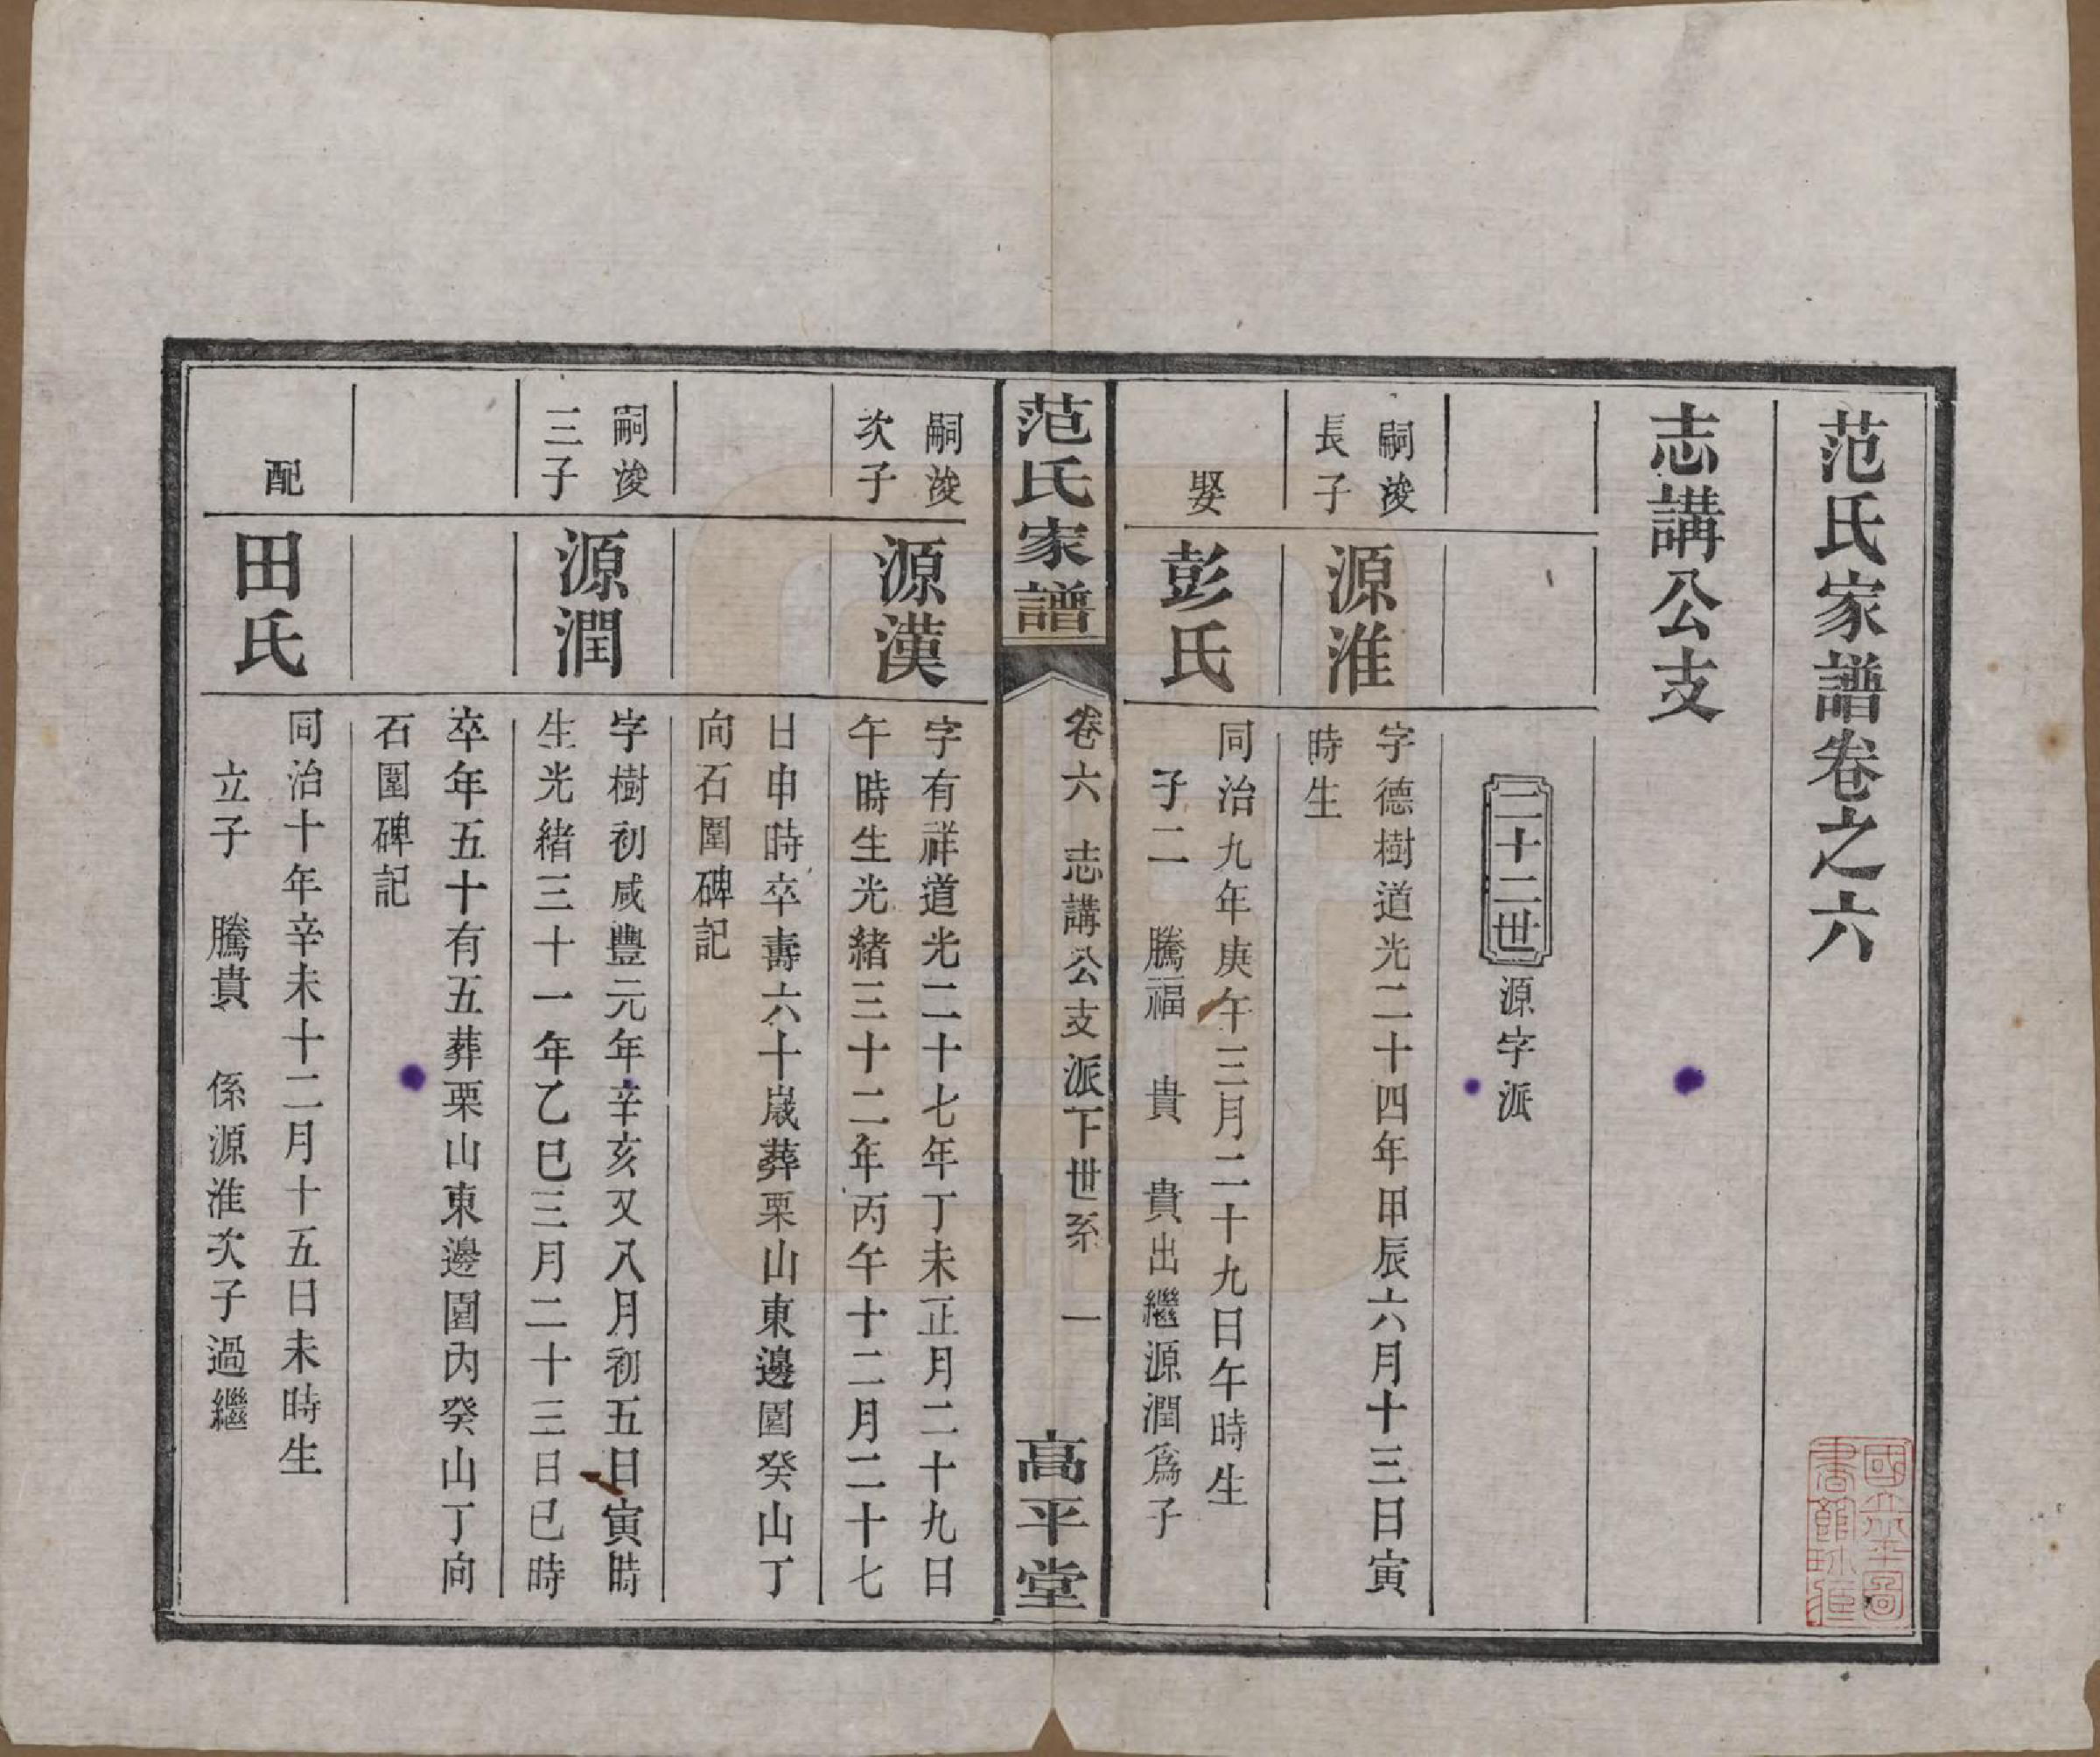 范氏家譜卷之六
志講公支
二十二世 源字派
嗣浚
長子
源淮
字德樹道光二十四年甲辰六月十三日寅
時生
娶
彭氏
同治九年庚午三月二十九日午時生
子二 騰福 貴 貴出繼源潤為子
范氏家譜 卷六 志講公支派下世系 一 高平堂
嗣浚
次子
源漢
字有祥道光二十七年丁未正月二十九日
午時生光緒三十二年丙午十二月二十七
日申時卒壽六十歲葬栗山東邊園癸山丁
向石圍碑記
嗣浚
三子
源潤
字樹初咸豐元年辛亥又八月初五日寅時
生光緒三十一年乙巳三月二十三日巳時
卒年五十有五葬栗山東邊園內癸山丁向
石圍碑記
配
田氏
同治十年辛未十二月十五日未時生
立子 騰貴 係源淮次子過繼
國立北平圖
書館珍藏